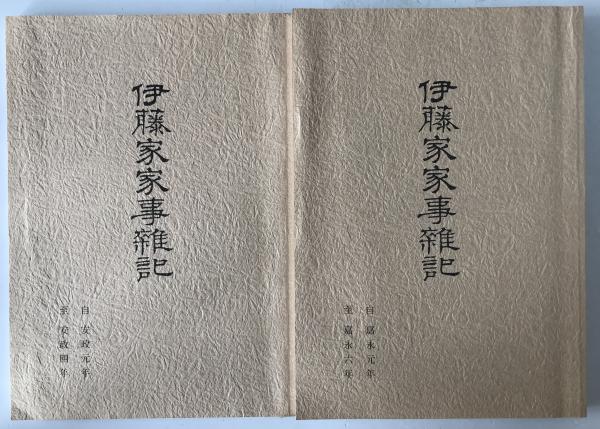 伊藤家家事雜記
自 嘉永元年
至 嘉永六年
伊藤家家事雜記
自 安政元年
至 安政四年